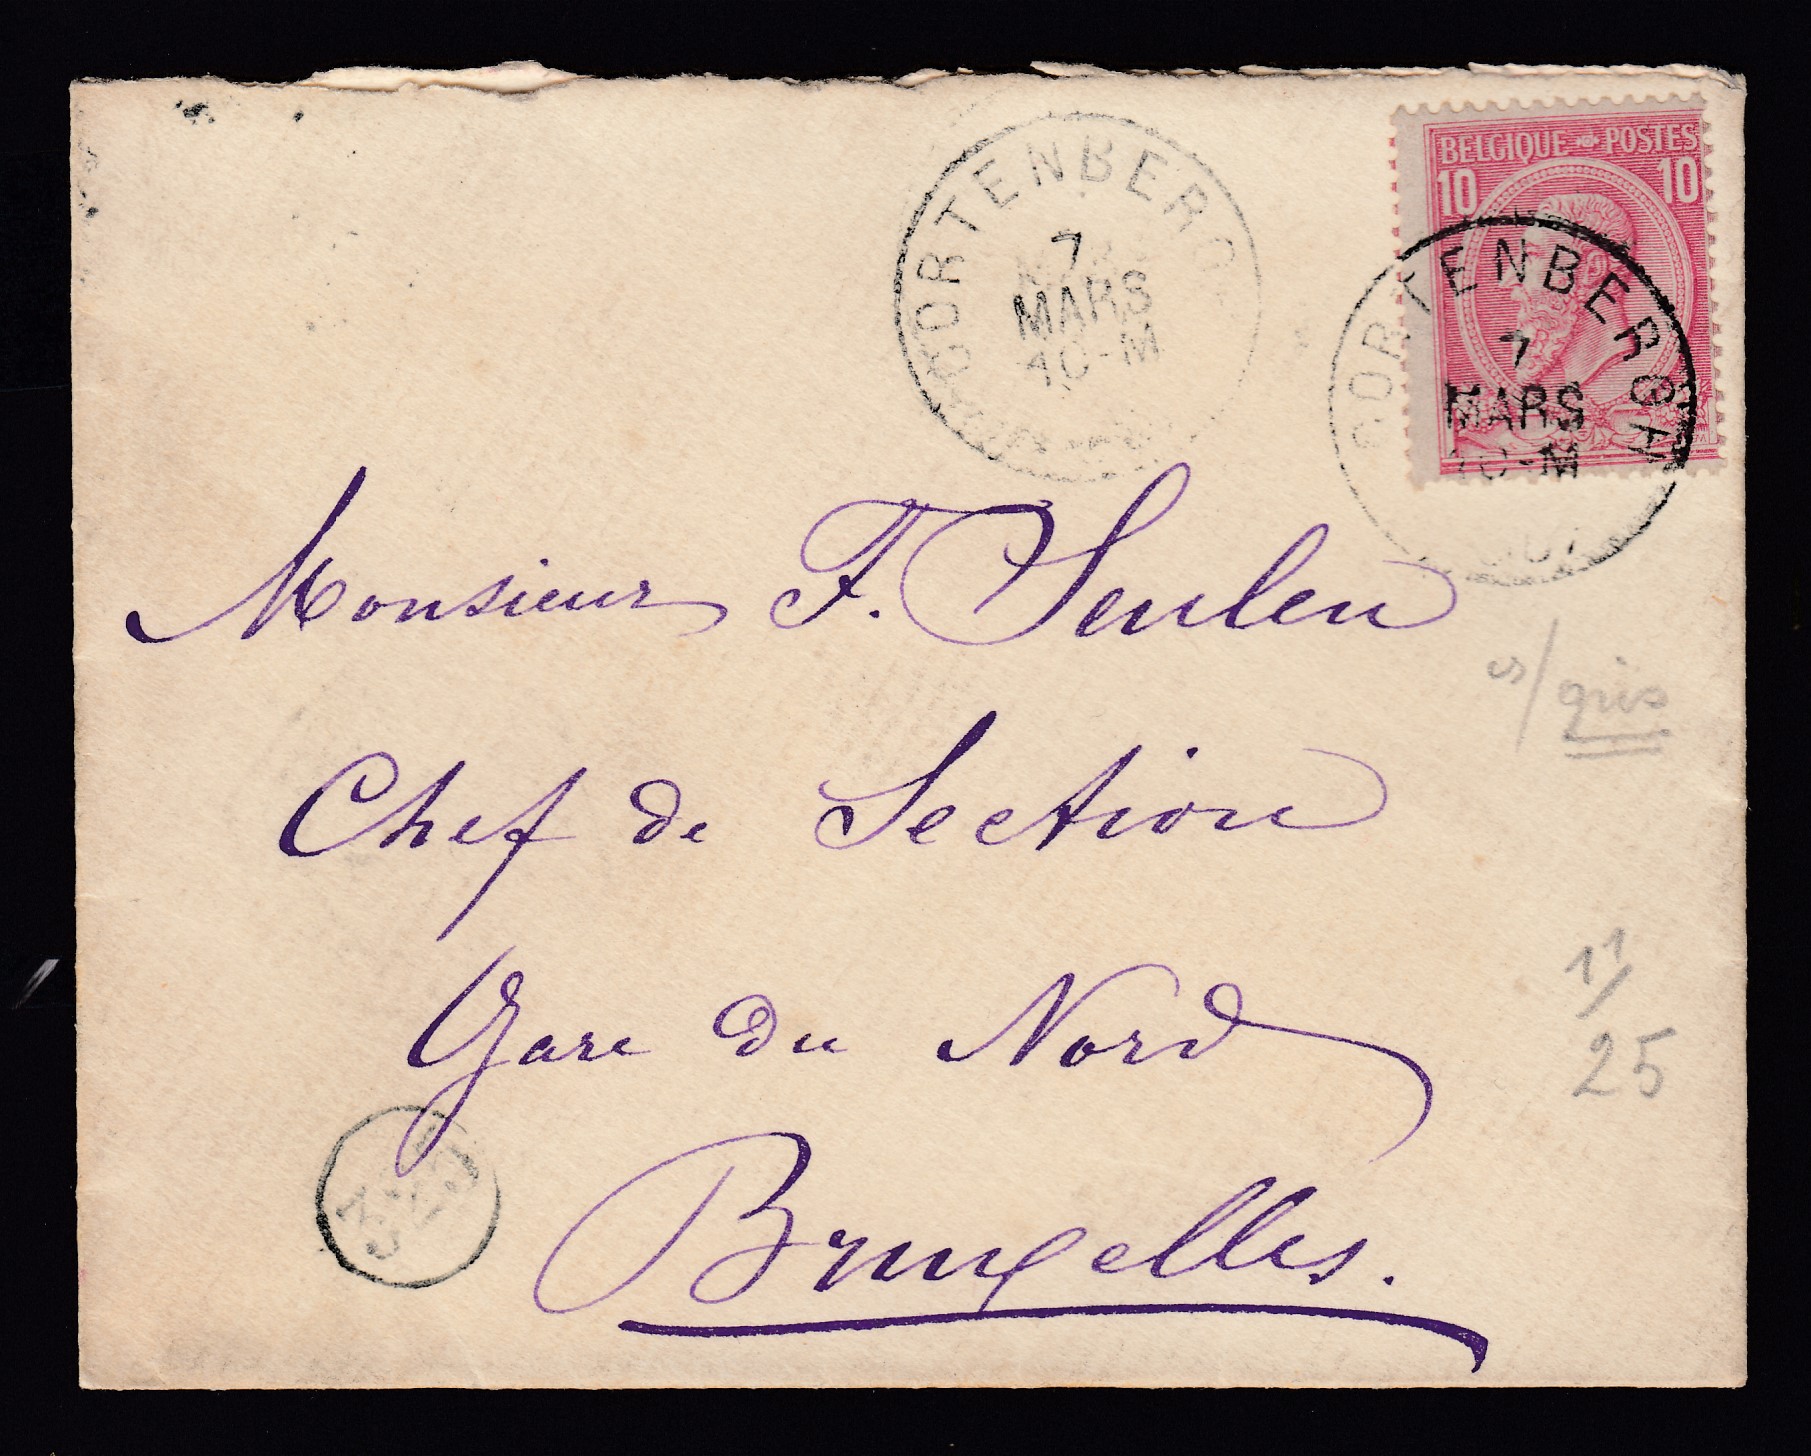 BELGIQUE POSTES
10 10
CORTENBERG
7
MARS
10-M
CORTENBERGH
7
MARS
10-M
Monsieur F. Seulen
s/ gris
Chef de Section
Gare du Nord
11/
25
Bruxelles.